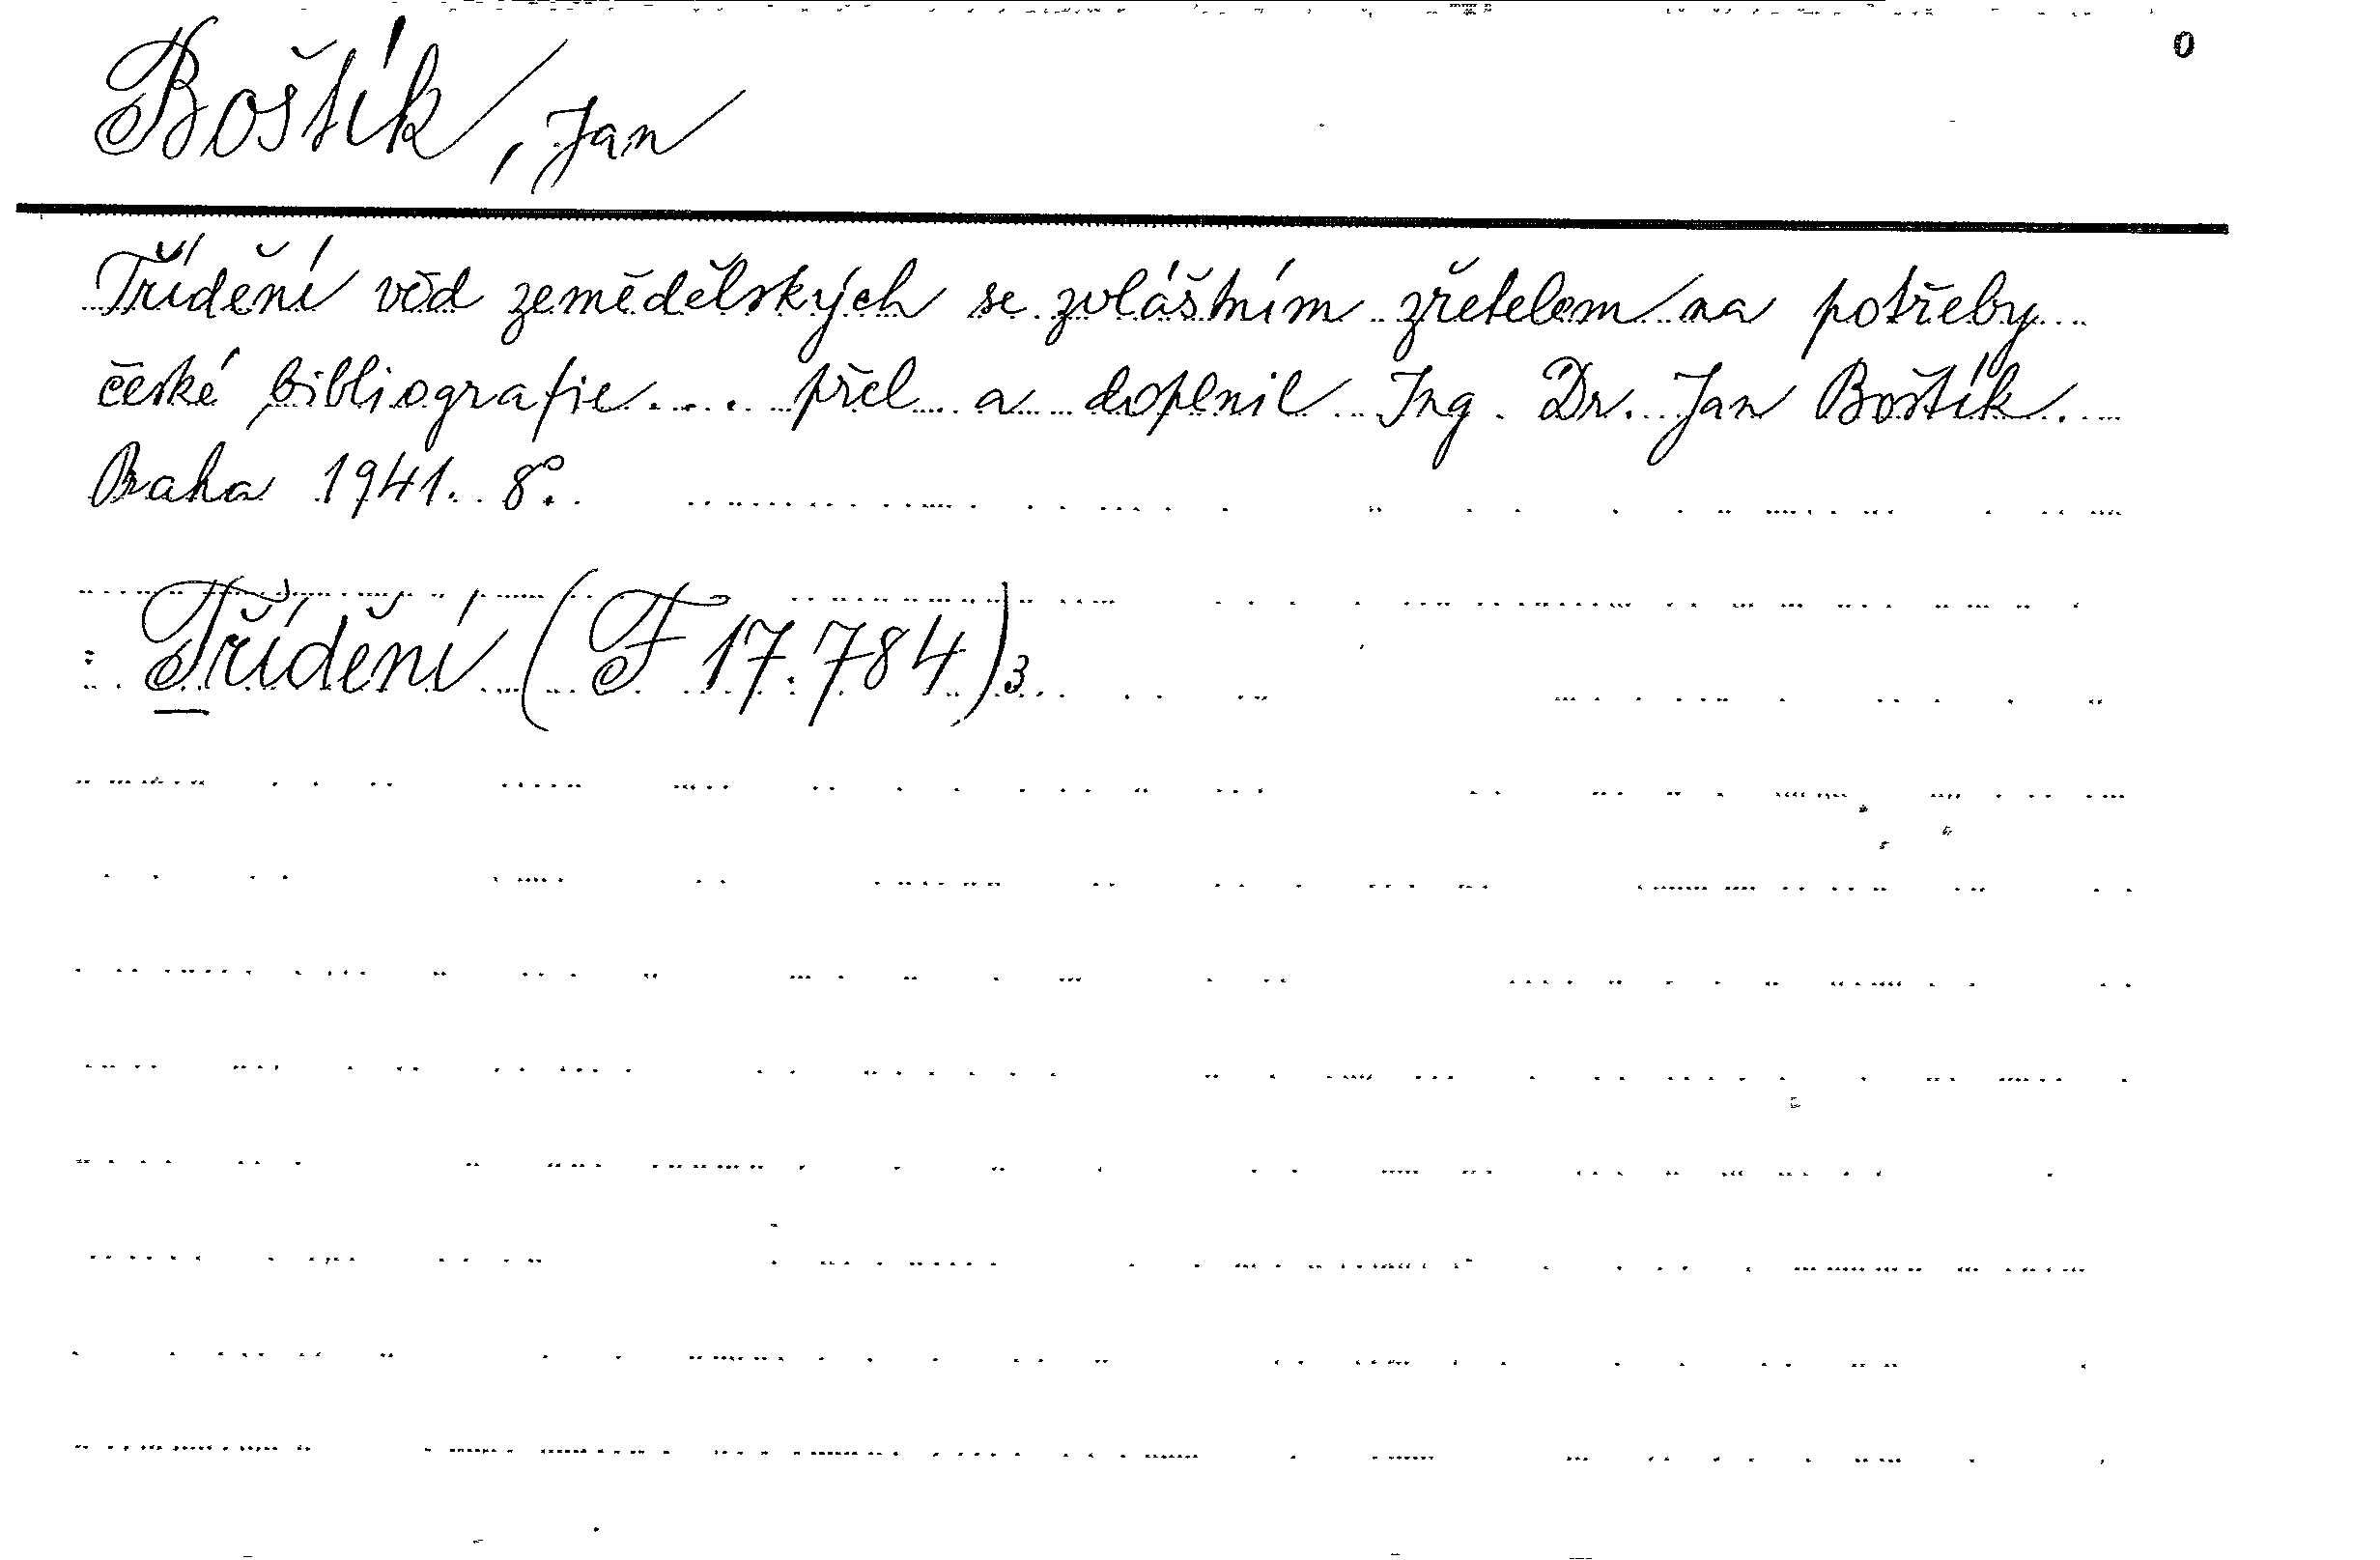 0
Boštík, Jan
Třídění věd zemědělských se zvláštním zřetelem na potřeby
české bibliografie.... přel a doplnil Ing. Dr. Jan Boštík.
Praha 1941. 8°.
: Třídění (F 17.784)3